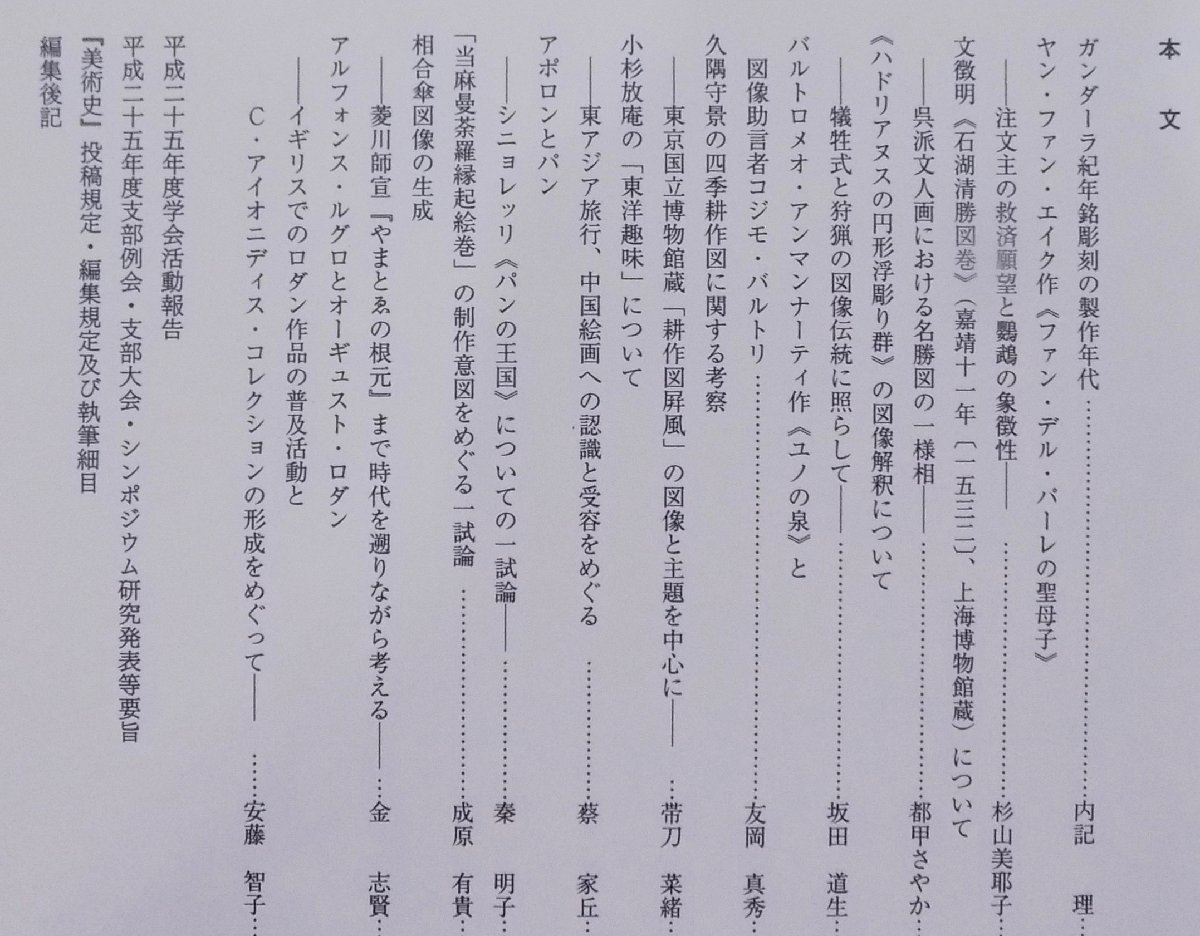 本　文
ガンダーラ紀年銘彫刻の製作年代……………………………………内記　　理…
ヤン・ファン・エイク作《ファン・デル・パーレの聖母子》
――注文主の救済願望と鸚鵡の象徴性――　……………………杉山美耶子…
文徴明《石湖清勝図巻》（嘉靖十一年〔一五三二〕、上海博物館蔵）について
――呉派文人画における名勝図の一様相――……………………都甲さやか…
《ハドリアヌスの円形浮彫り群》の図像解釈について
――犠牲式と狩猟の図像伝統に照らして――……………………坂田　道生…
バルトロメオ・アンマンナーティ作《ユノの泉》と
図像助言者コジモ・バルトリ……………………………………友岡　真秀…
久隅守景の四季耕作図に関する考察
――東京国立博物館蔵「耕作図屛風」の図像と主題を中心に――　…帯刀　菜緒…
小杉放庵の「東洋趣味」について
――東アジア旅行、中国絵画への認識と受容をめぐる　……………蔡　　家丘…
アポロンとパン
――シニョレッリ《パンの王国》についての一試論――……………秦　　明子…
「当麻曼荼羅縁起絵巻」の制作意図をめぐる一試論　………………………成原　有貴…
相合傘図像の生成
――菱川師宣『やまとゑの根元』まで時代を遡りながら考える――…金　　志賢…
アルフォンス・ルグロとオーギュスト・ロダン
――イギリスでのロダン作品の普及活動と
C・アイオニディス・コレクションの形成をめぐって――　……安藤　智子…
平成二十五年度学会活動報告
平成二十五年度支部例会・支部大会・シンポジウム研究発表等要旨
『美術史』投稿規定・編集規定及び執筆細目
編集後記